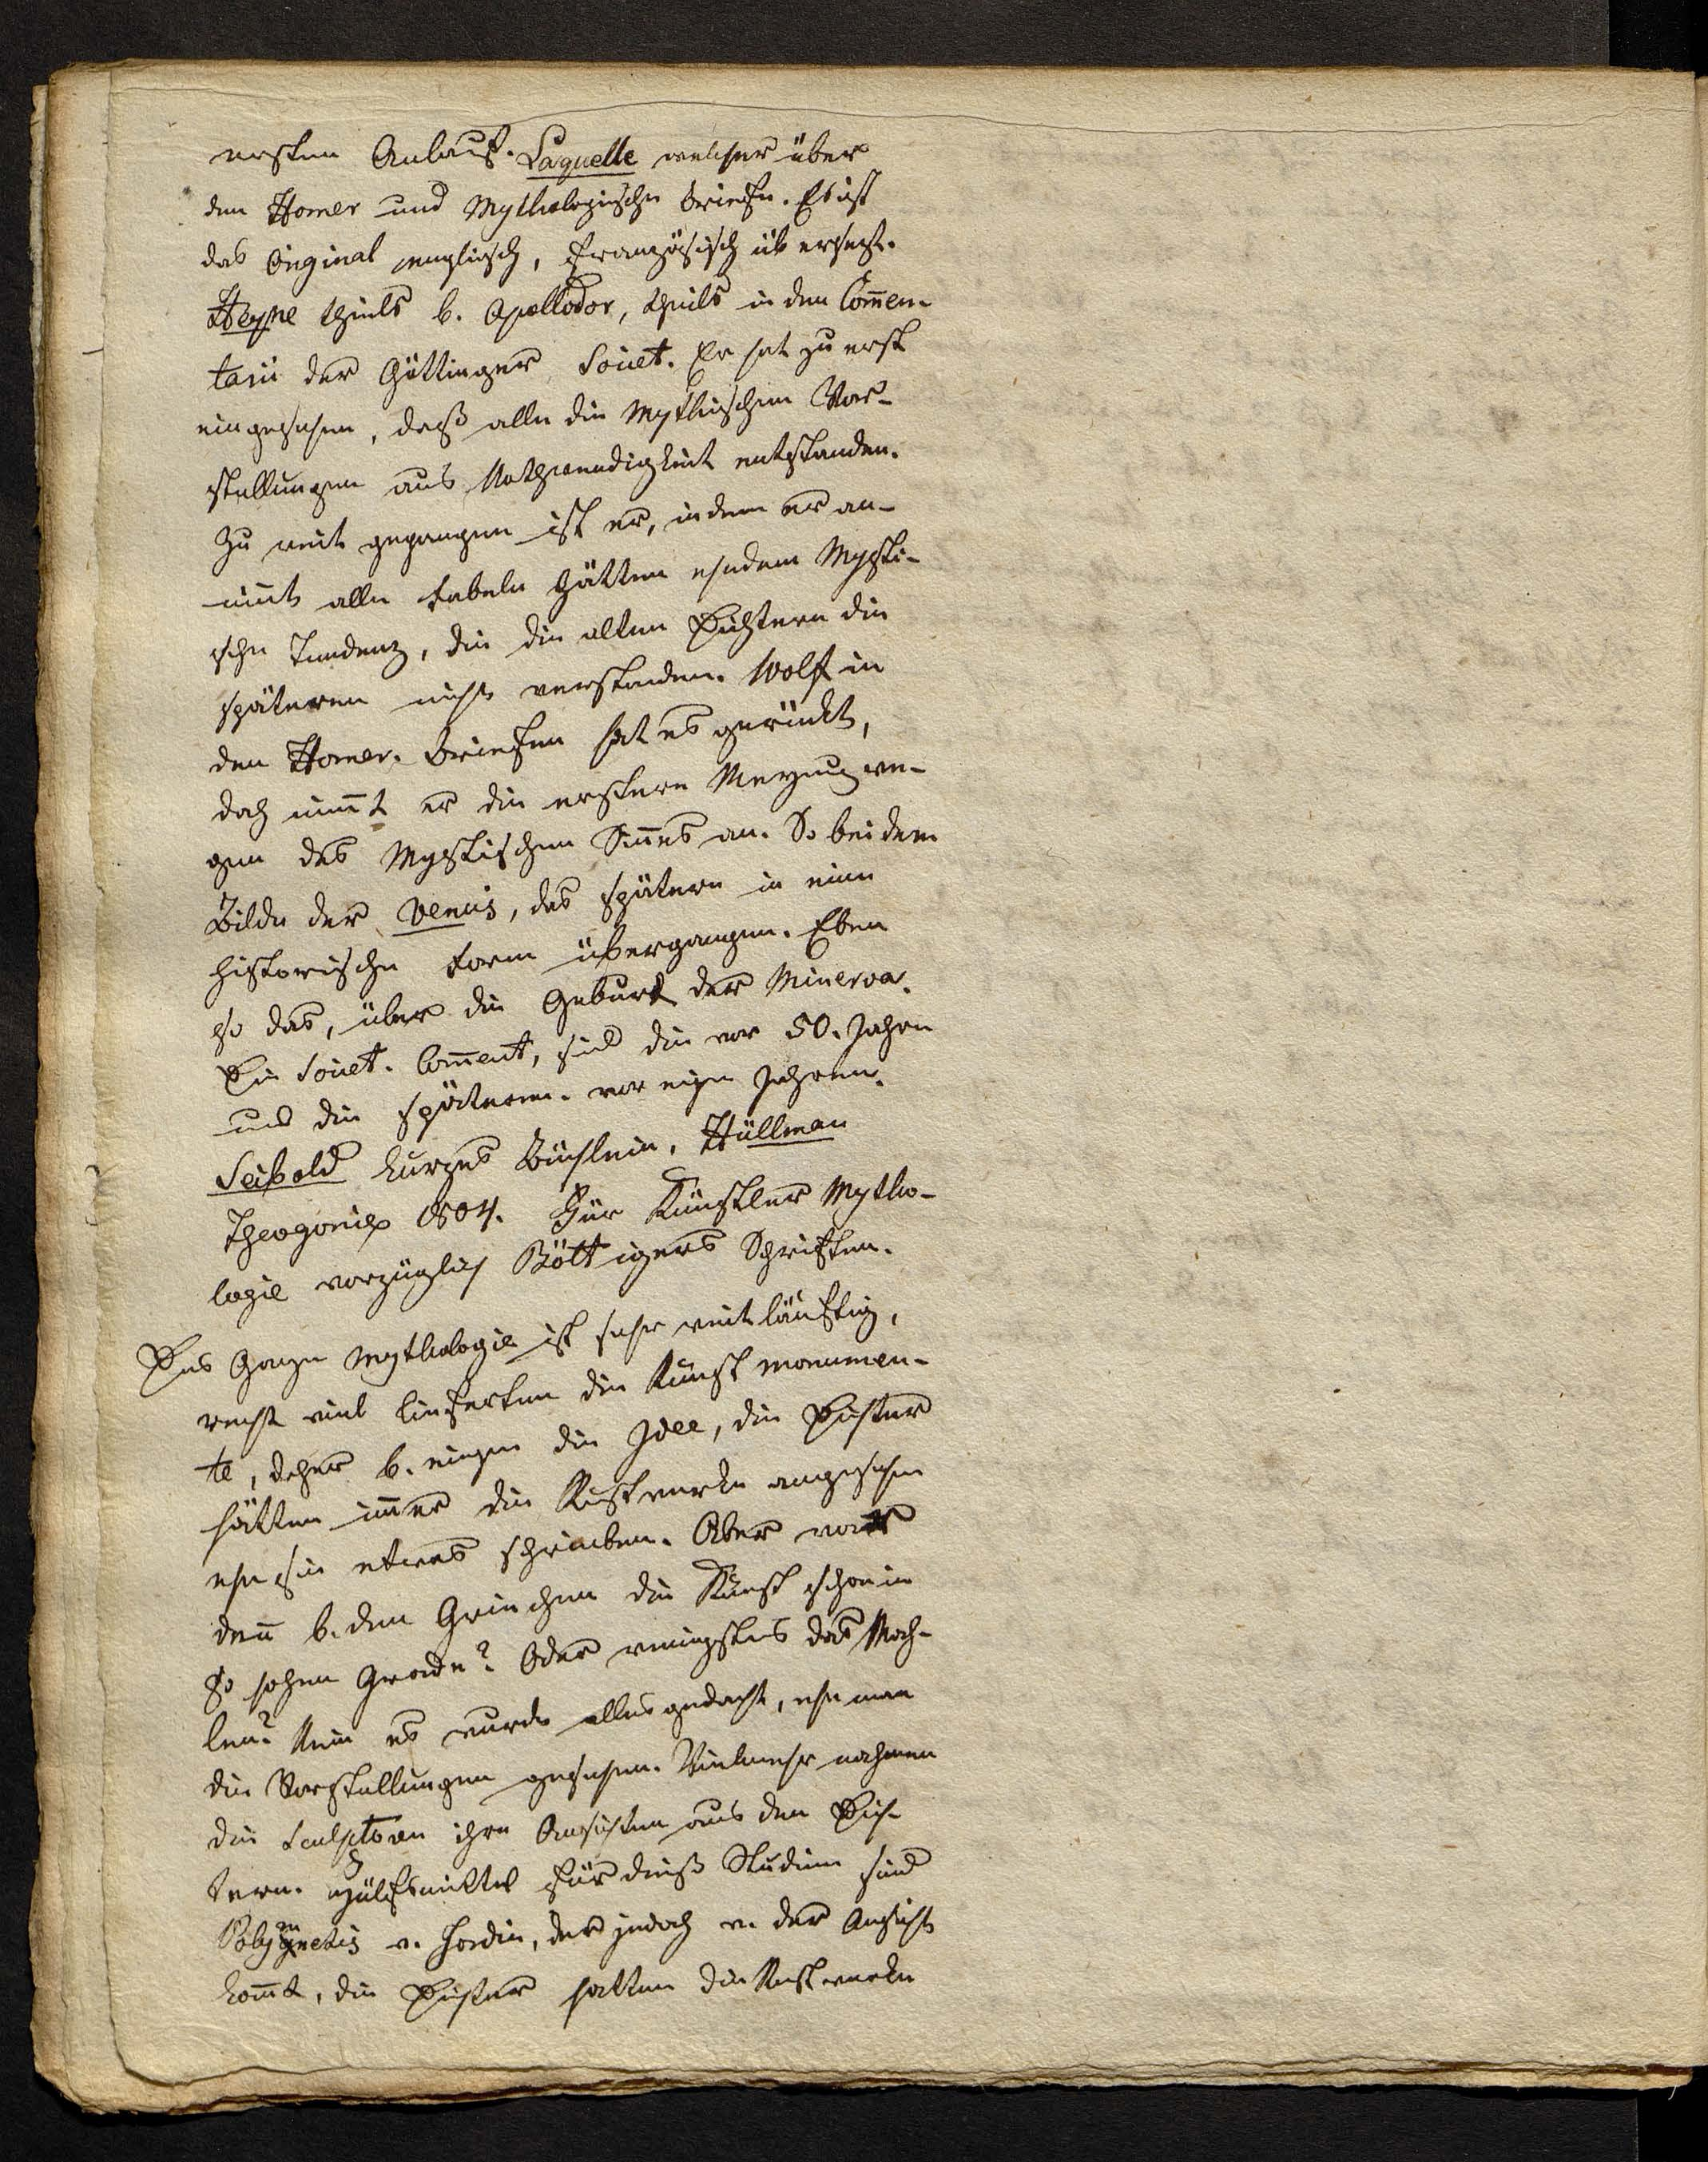 ersten Anlauf. Laquelle welcher über
den Homer und Mythologische Briefe. Es ist
das Original englisch, französisch übersetzt.
Heyne theils b. Apollodor, theils in den Com̄en-
tarii der Göttinger Societ. Er hat zu erst
eingesehen, daß alle die Mythischen Vor-
stellungen aus Nothwendigkeit entstanden.
Zu weit gegangen ist er, indem er an-
nim̄t alle Fabeln hätten ehedem Mysti-
sche Tendenz, die die alten Dichtern die
späteren nicht verstanden. Wolf in
den Homer. Briefen hat es gerückt,
doch nim̄t er die erstere Meynung we-
gen des Mystischen Sin̄es an. So bei dem
Bilde der Venus, das spätern in eine
historische Form übergangen. Eben
so das, über die Geburt der Minerva.
Die Societ. Com̄ent, sind die vor 50. Jahre
und die späteren. vor eigen Jahren.
Seibold kurzes Büchlein, Hüllman
Theogonie 1804. Für Künstler Mytho-
logie vorzüglich Böttigers Schriften.
Das Ganze Mythologie ist sehr weitläuftig,
recht viel lieferten die Kunst monumen-
te, daher b. einigen die Idee, die Dichter
hätten im̄er die Kustwerke angesehen
ehe sie etwas schrieben. Aber war
den̄ b. den Griechen die Kunst schon in
so hohen Grade? Oder wenigstens das Mah-
len? Nein es wurde alles gedacht, ehe man
die Vorstellungen gesehen. Vielmehr nahmen
die Sculptoren ihre Ansichten aus den Dich-
tern. Hülfsmittel für dieß Studium sind
Polymetis v. Hordin, der jedoch v. der Ansicht
kom̄t, die Dichter hatten die Kustwerke